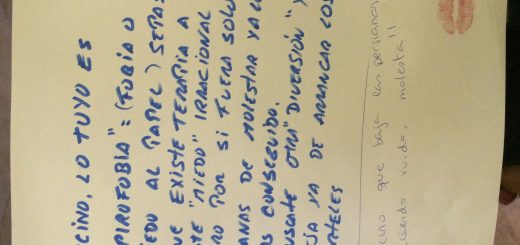 CINO, LO TUYO ES
PIROFOBIA" = (FOBIA O
EDO AL PAPEL) SEPAS
UE EXISTE TERAPIA A
TE "MIEDO" IRRACIONAL
RO POR SI FUERA SOLO
ANAS DE MOLESTAR YA LO
AS CONSEGUIDO.
USCATE OTRA "DIVERSIÓN" Y
JA YA DE ARRANCAR LOS
RTELES
cino que baja las persianas
ciendo ruido, molesta!!